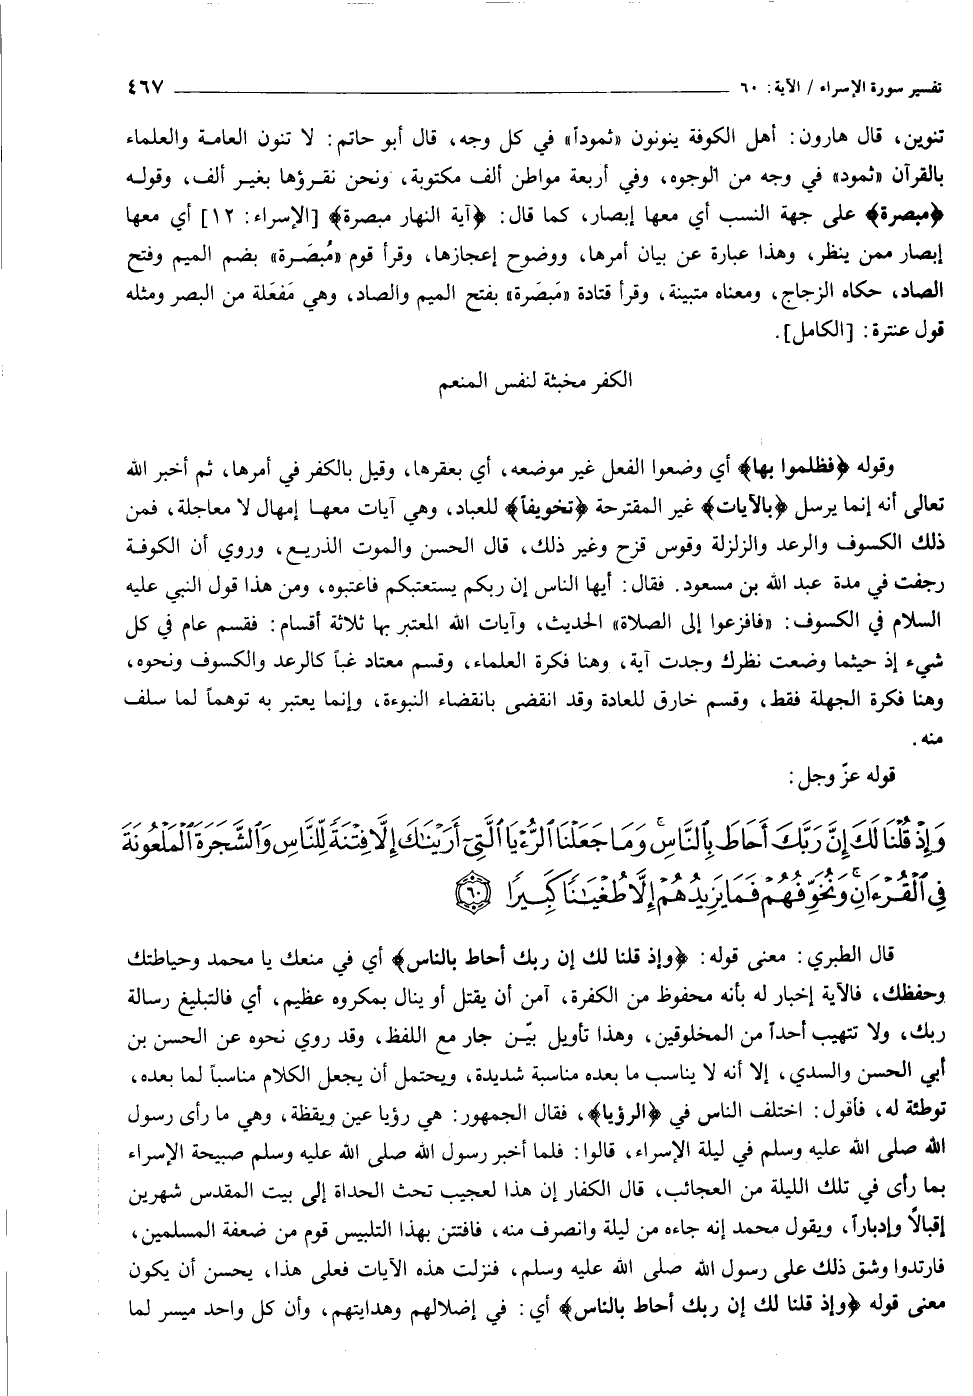 تفسير سورة الإسراء / الآية: ٦٠ ٤٦٧
تنوين، قال هارون: أهل الكوفة ينونون «ثموداً» في كل وجه، قال أبو حاتم: لا تنون العامة والعلماء
بالقرآن «ثمود» في وجه من الوجوه، وفي أربعة مواطن ألف مكتوبة، ونحن نقرؤها بغير ألف، وقوله
﴿مبصرة﴾ على جهة النسب أي معها إبصار، كما قال: ﴿آية النهار مبصرة﴾ [الإسراء: ١٢] أي معها
إبصار ممن ينظر، وهذا عبارة عن بيان أمرها، ووضوح إعجازها، وقرأ قوم «مُبصَرة» بضم الميم وفتح
الصاد، حكاه الزجاج، ومعناه متبينة، وقرأ قتادة «مَبصَرة» بفتح الميم والصاد، وهي مَفعَلة من البصر ومثله
قول عنترة: [الكامل].
الكفر مخبثة لنفس المنعم
وقوله ﴿فظلموا بها﴾ أي وضعوا الفعل غير موضعه، أي بعقرها، وقيل بالكفر في أمرها، ثم أخبر الله
تعالى أنه إنما يرسل ﴿بالآيات﴾ غير المقترحة ﴿تخويفاً﴾ للعباد، وهي آيات معها إمهال لا معاجلة، فمن
ذلك الكسوف والرعد والزلزلة وقوس قزح وغير ذلك، قال الحسن والموت الذريع، وروي أن الكوفة
رجفت في مدة عبد الله بن مسعود. فقال: أيها الناس إن ربكم يستعتبكم فاعتبوه، ومن هذا قول النبي عليه
السلام في الكسوف: «فافزعوا إلى الصلاة» الحديث، وآيات الله المعتبر بها ثلاثة أقسام: فقسم عام في كل
شيء إذ حيثما وضعت نظرك وجدت آية، وهنا فكرة العلماء، وقسم معتاد غباً كالرعد والكسوف ونحوه،
وهنا فكرة الجهلة فقط، وقسم خارق للعادة وقد انقضى بانقضاء النبوءة، وإنما يعتبر به توهماً لما سلف
منه.
قوله عزّ وجل:
وَإِذْ قُلْنَا لَكَ إِنَّ رَبَّكَ أَحَاطَ بِالنَّاسِ ۚ وَمَا جَعَلْنَا الرُّءْيَا الَّتِي أَرَيْنَاكَ إِلَّا فِتْنَةً لِّلنَّاسِ وَالشَّجَرَةَ الْمَلْعُونَةَ
فِي الْقُرْءَانِ ۚ وَنُخَوِّفُهُمْ فَمَا يَزِيدُهُمْ إِلَّا طُغْيَانًا كَبِيرًا ٦٠
قال الطبري: معنى قوله: ﴿وإذ قلنا لك إن ربك أحاط بالناس﴾ أي في منعك يا محمد وحياطتك
وحفظك، فالآية إخبار له بأنه محفوظ من الكفرة، آمن أن يقتل أو ينال بمكروه عظيم، أي فالتبليغ رسالة
ربك، ولا تتهيب أحداً من المخلوقين، وهذا تأويل بيّن جار مع اللفظ، وقد روي نحوه عن الحسن بن
أبي الحسن والسدي، إلا أنه لا يناسب ما بعده مناسبة شديدة، ويحتمل أن يجعل الكلام مناسباً لما بعده،
توطئة له، فأقول: اختلف الناس في ﴿الرؤيا﴾، فقال الجمهور: هي رؤيا عين ويقظة، وهي ما رأى رسول
الله صلى الله عليه وسلم في ليلة الإسراء، قالوا: فلما أخبر رسول الله صلى الله عليه وسلم صبيحة الإسراء
بما رأى في تلك الليلة من العجائب، قال الكفار إن هذا لعجيب تحث الحداة إلى بيت المقدس شهرين
إقبالاً وإدباراً، ويقول محمد إنه جاءه من ليلة وانصرف منه، فافتتن بهذا التلبيس قوم من ضعفة المسلمين،
فارتدوا وشق ذلك على رسول الله صلى الله عليه وسلم، فنزلت هذه الآيات فعلى هذا، يحسن أن يكون
معنى قوله ﴿وإذ قلنا لك إن ربك أحاط بالناس﴾ أي: في إضلالهم وهدايتهم، وأن كل واحد ميسر لما